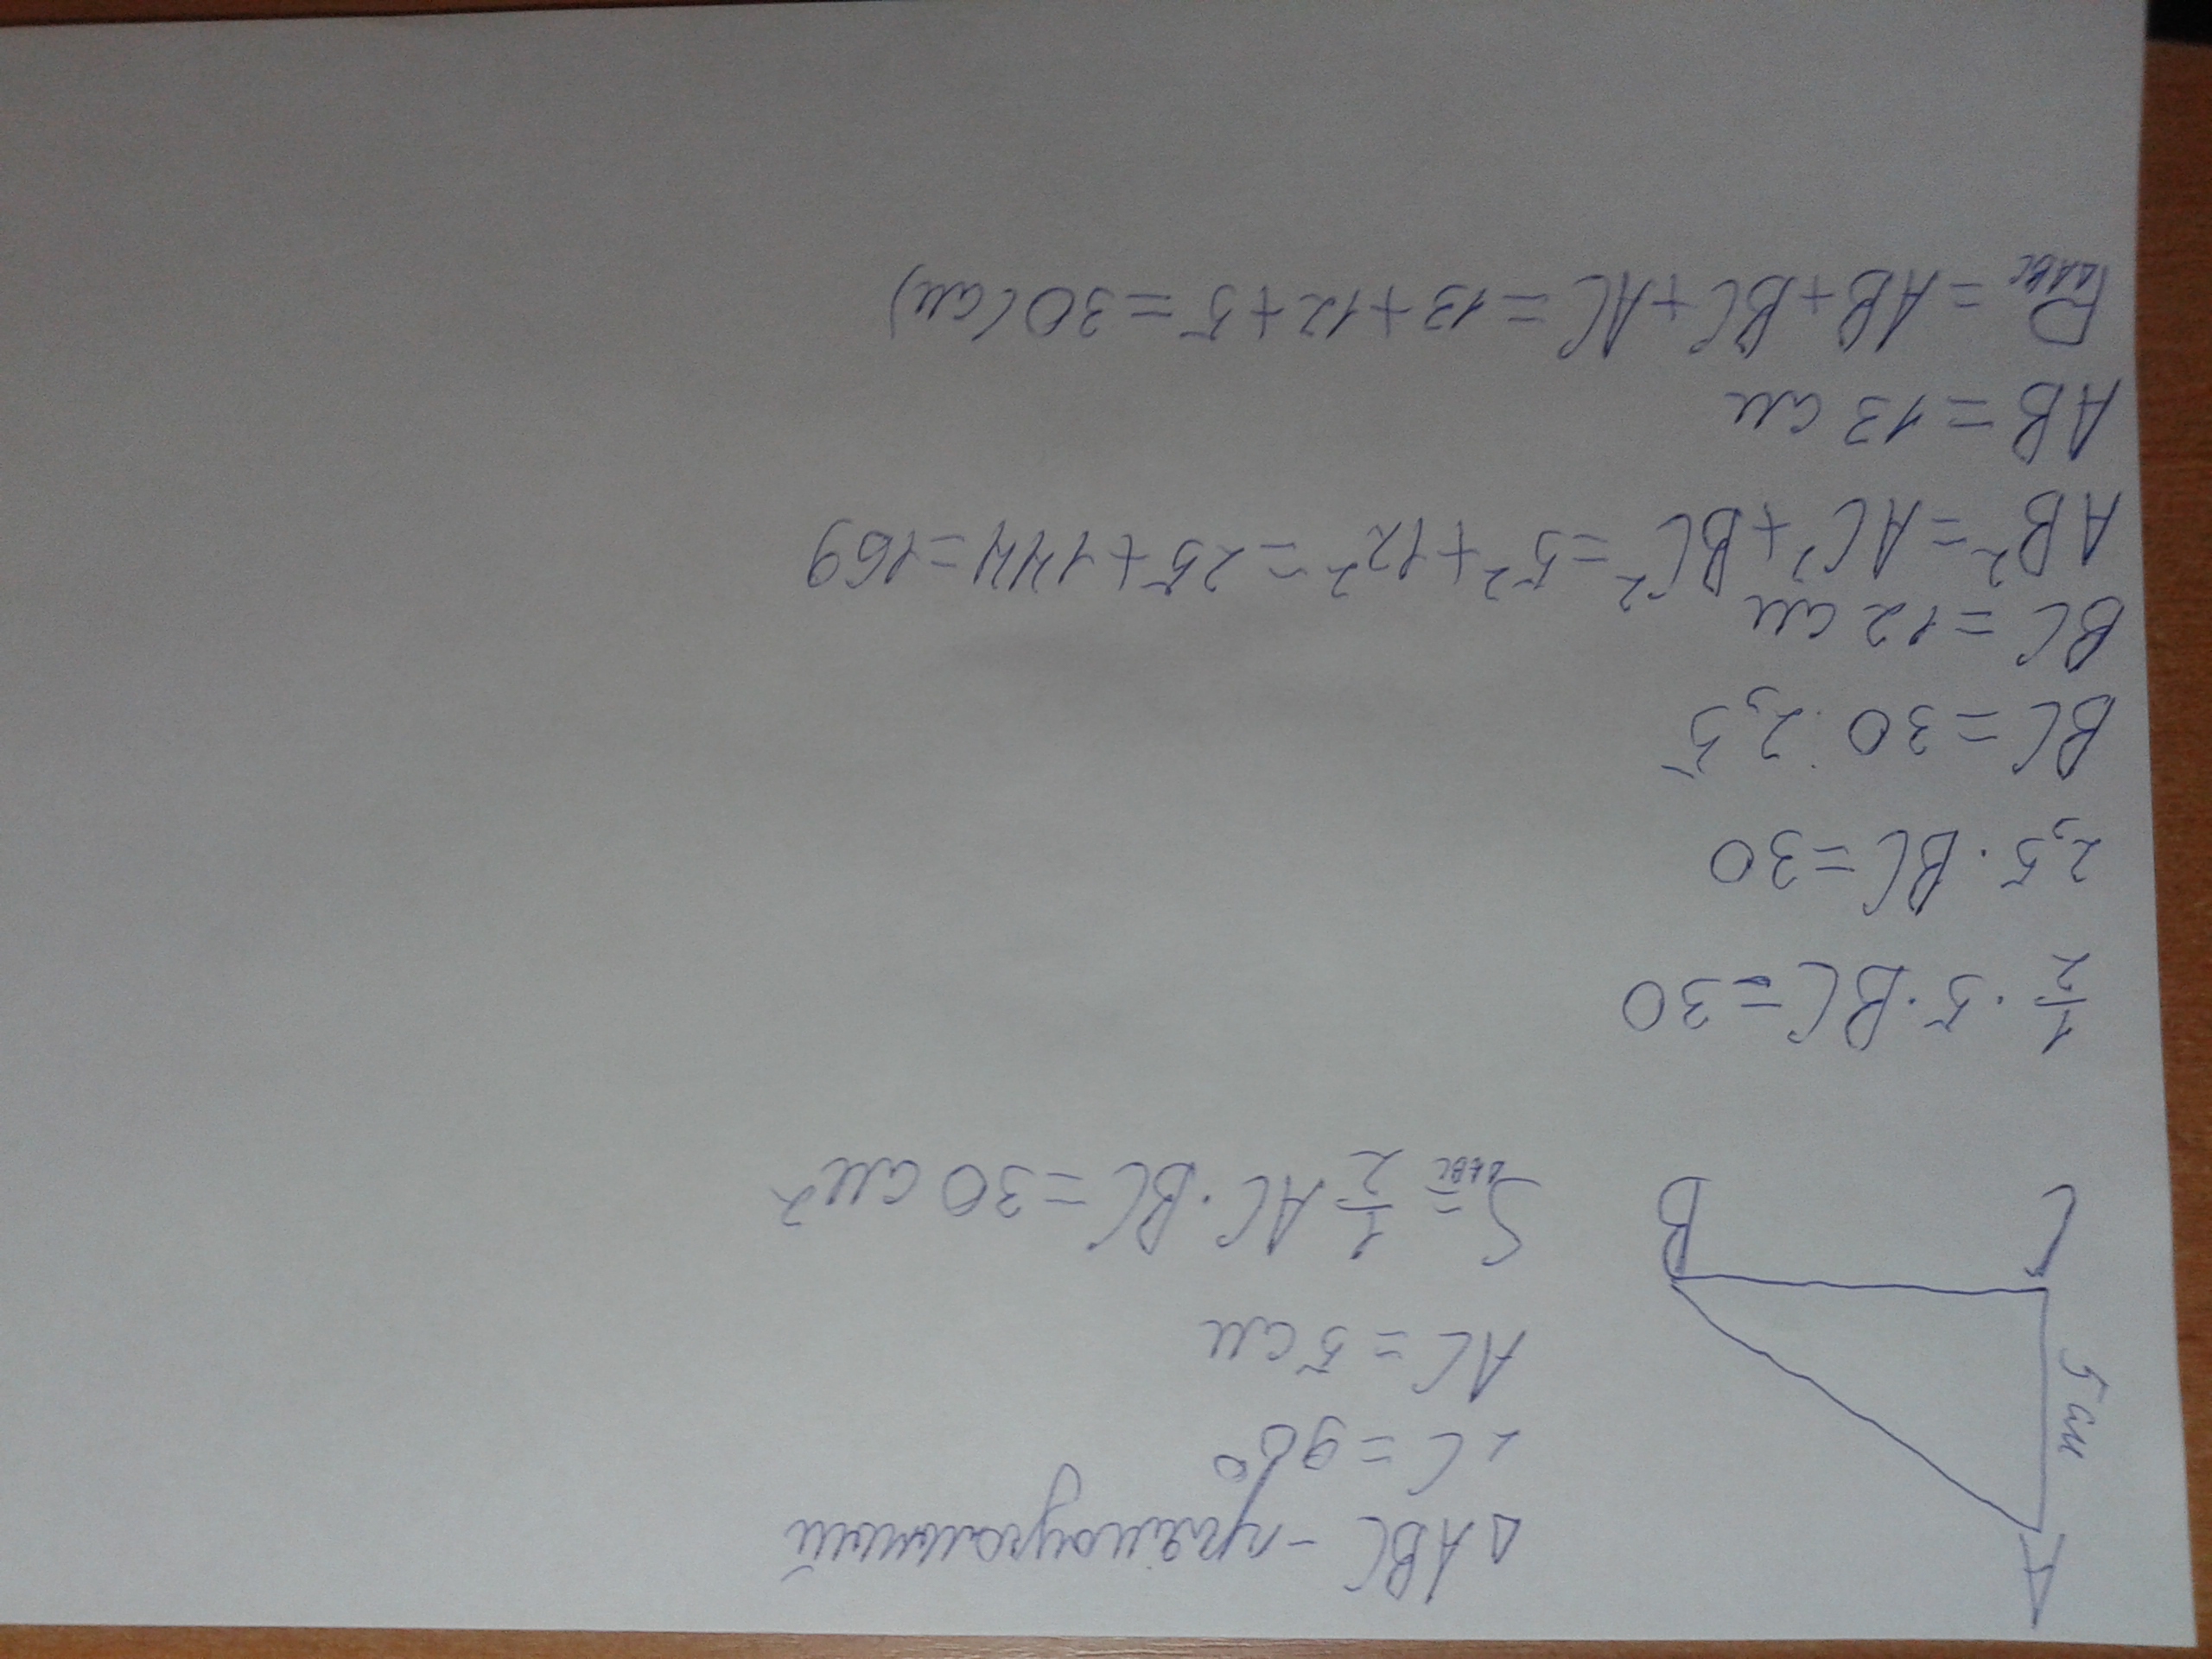 A
5 см
C
B
△ABC - прямоугольный
∠C = 90°
AC = 5 см
S△ABC = 1/2 AC · BC = 30 см²
1/2 · 5 · BC = 30
2,5 · BC = 30
BC = 30 : 2,5
BC = 12 см
AB² = AC² + BC² = 5² + 12² = 25 + 144 = 169
AB = 13 см
P△ABC = AB + BC + AC = 13 + 12 + 5 = 30 (см)